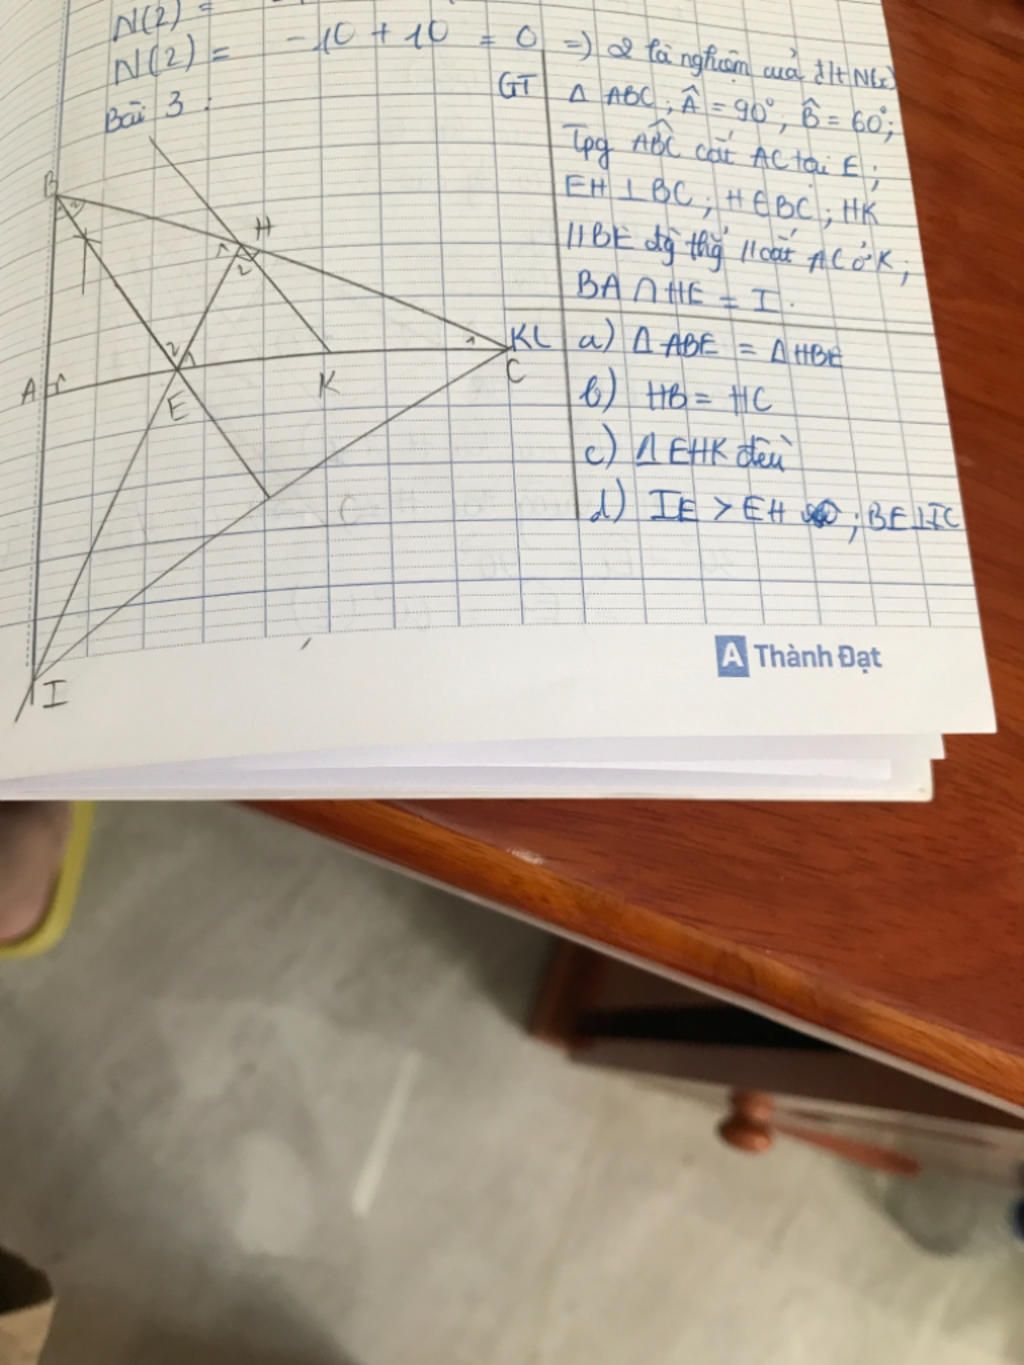 N(2) =
N(2) = -10 + 10 = 0 => 2 là nghiệm của đ/t N(x)
Bài 3 :
GT Δ ABC, Â = 90°, B̂ = 60°;
Tpg ABC cắt AC tại E;
EH ⊥ BC; H ∈ BC; HK
// BE đg thg // cắt AC ở K;
BA ∩ HE = I.
KL a) Δ ABE = Δ HBE
b) HB = HC
c) Δ EHK đều
d) IE > EH ; BE ⊥ IC
B
2
H
1
2
2
1
1
A
1
E
K
C
I
A Thành Đạt